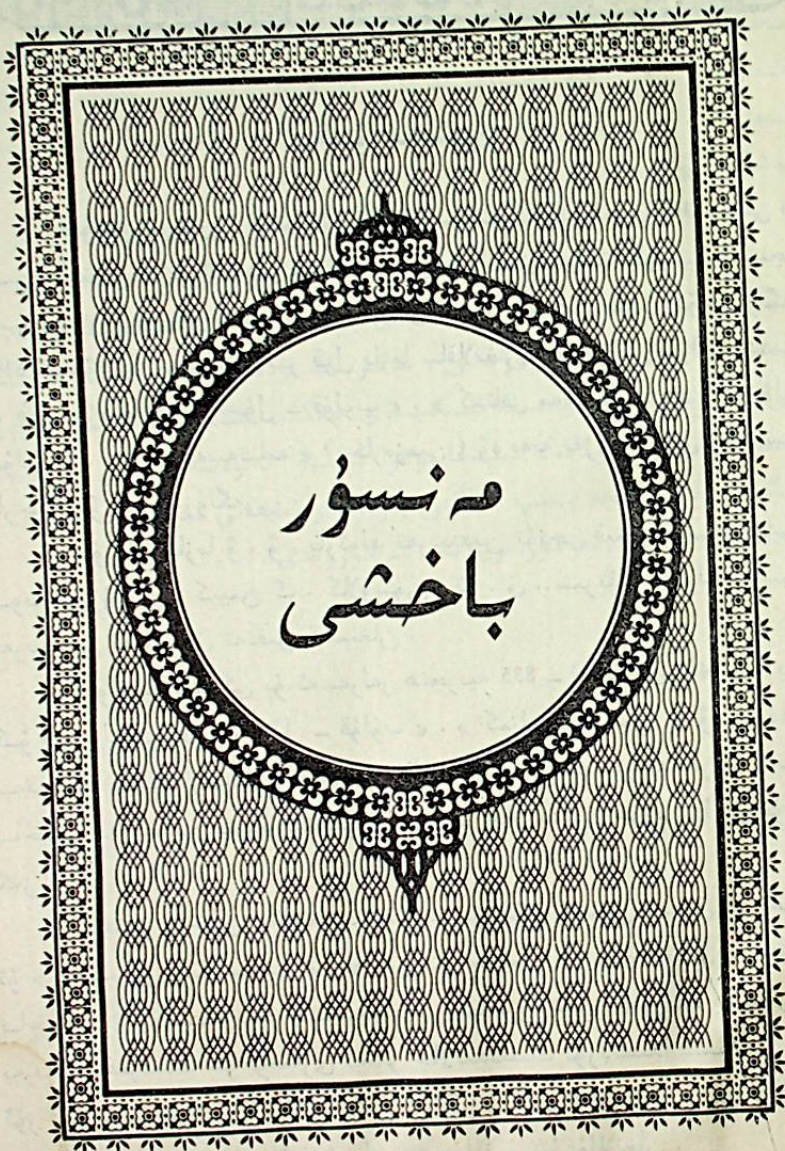 مەنسۇر
باخشى